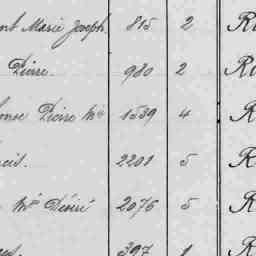 ent Marie Joseph. 815 2 R
Pierre. 980 2 R
onse Pierre Mie 1539 4 R
cis. 2201 5 R
Mie Désiré 2076 5 R
397 1 R